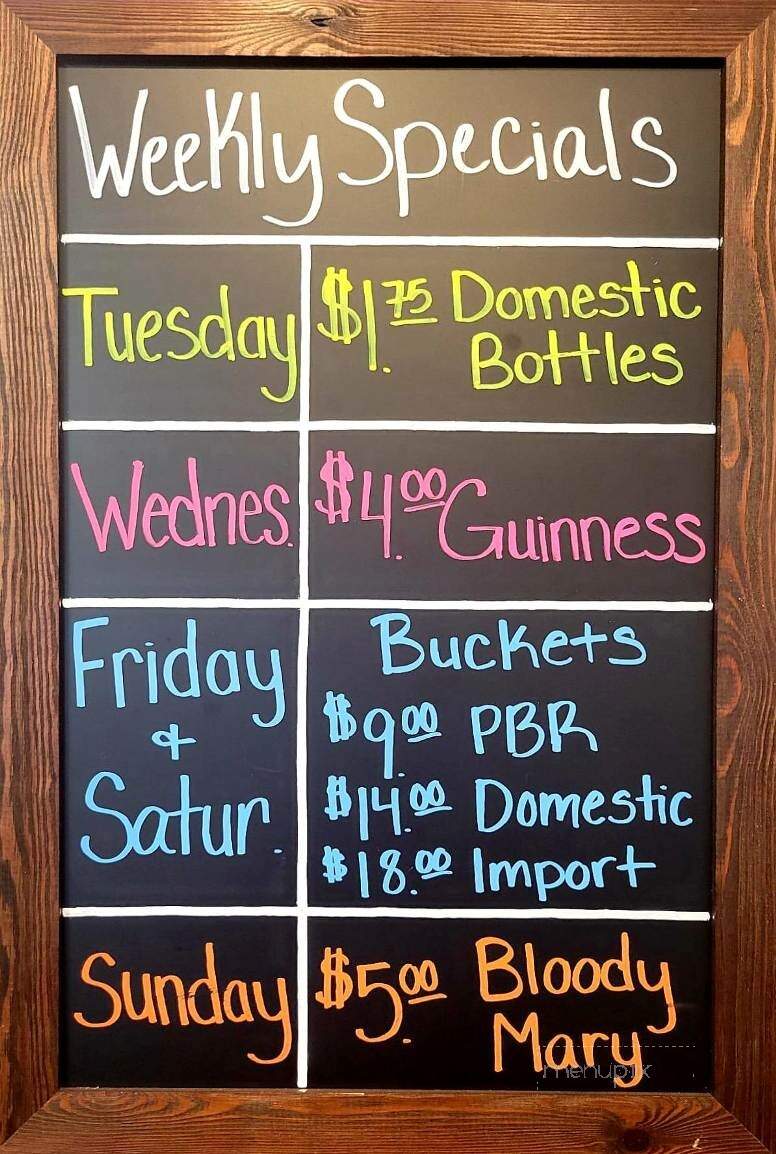 Weekly Specials
Tuesday
$1.75 Domestic
Bottles
Wednes.
$4.00 Guinness
Friday
&
Satur.
Buckets
$9.00 PBR
$14.00 Domestic
$18.00 Import
Sunday
$5.00 Bloody
Mary
menupix